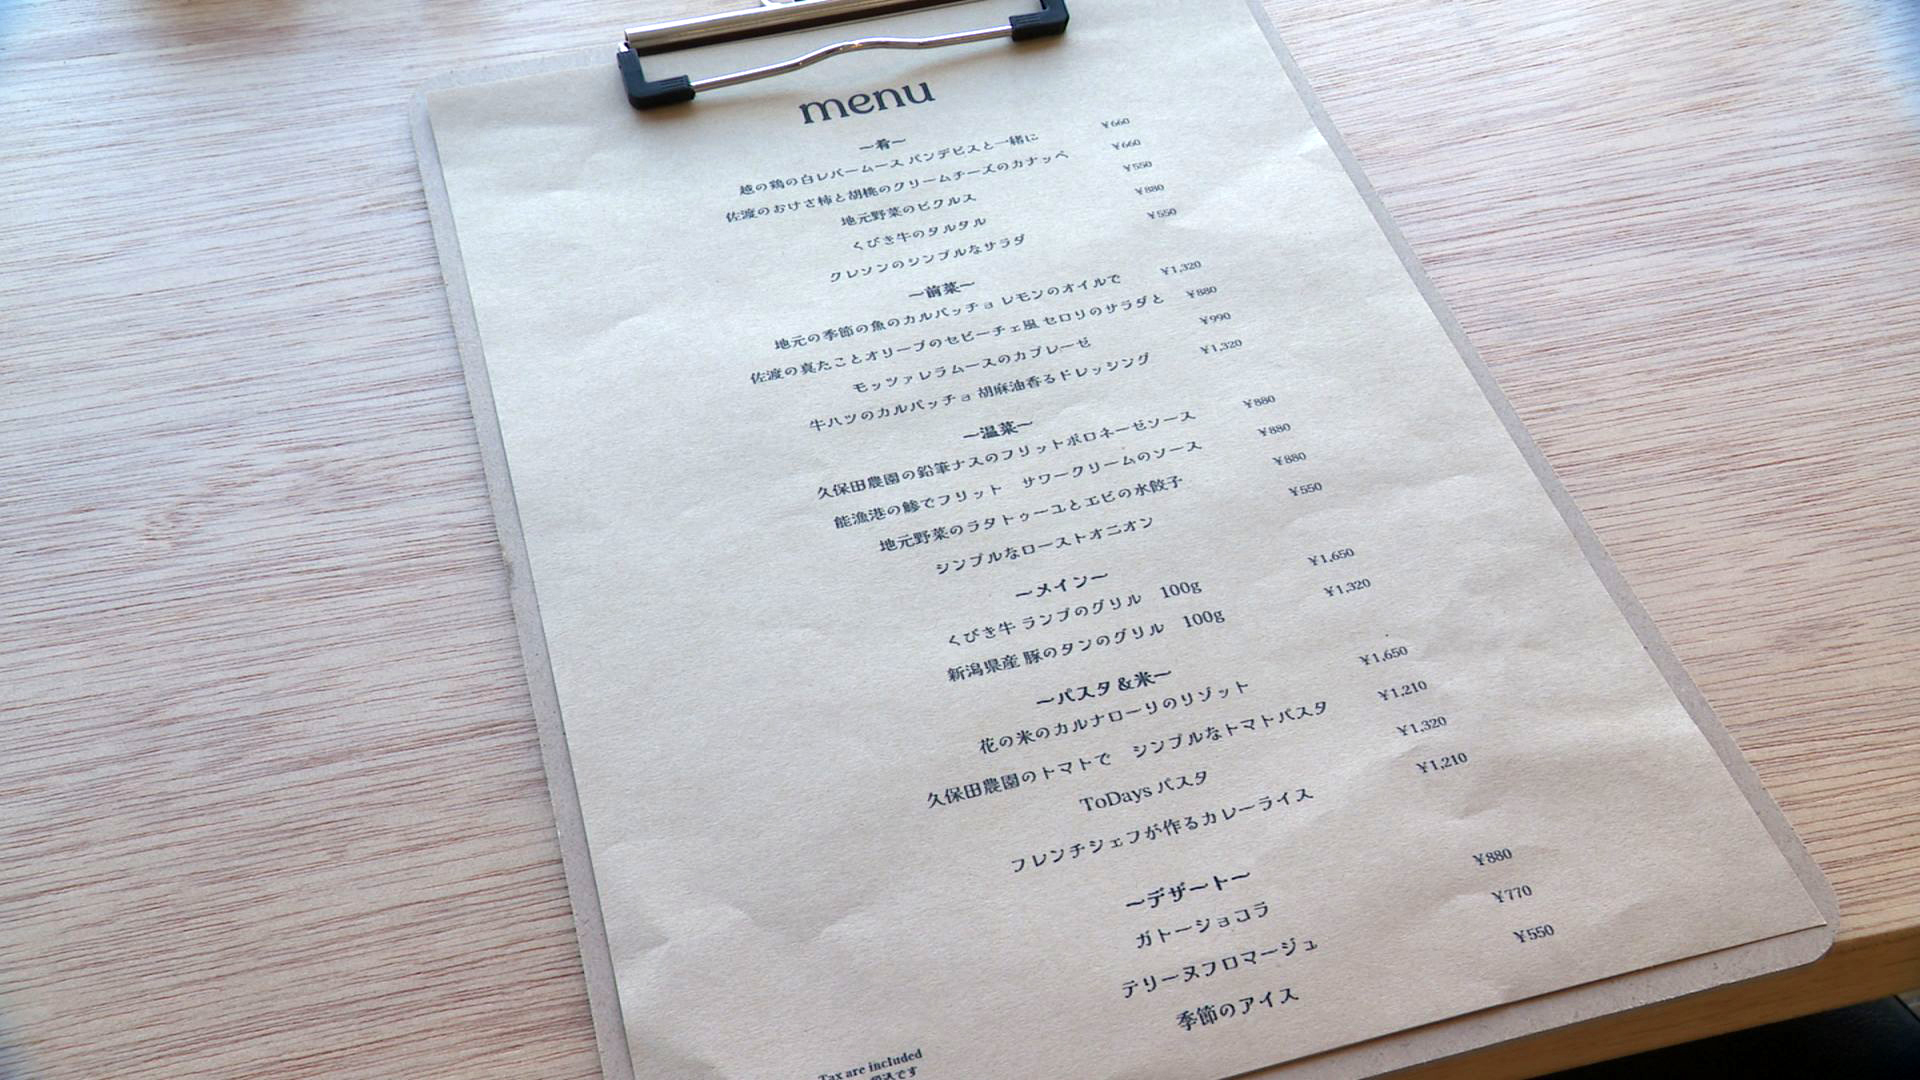 menu
〜肴〜
越の鶏の白レバームース パンデピスと一緒に ¥660
佐渡のおけさ柿と胡桃のクリームチーズのカナッペ ¥660
地元野菜のピクルス ¥550
くびき牛のタルタル ¥880
クレソンのシンプルなサラダ ¥550
〜前菜〜
地元の季節の魚のカルパッチョ レモンのオイルで ¥1,320
佐渡の真たことオリーブのセビーチェ風 セロリのサラダと ¥880
モッツァレラムースのカプレーゼ ¥990
牛ハツのカルパッチョ 胡麻油香るドレッシング ¥1,320
〜温菜〜
久保田農園の鉛筆ナスのフリットボロネーゼソース ¥880
能漁港の鯵でフリット サワークリームのソース ¥880
地元野菜のラタトゥーユとエビの水餃子 ¥880
シンプルなローストオニオン ¥550
〜メイン〜
くびき牛 ランプのグリル 100g ¥1,650
新潟県産 豚のタンのグリル 100g ¥1,320
〜パスタ &米〜
花の米のカルナローリのリゾット ¥1,650
久保田農園のトマトで シンプルなトマトパスタ ¥1,210
ToDays パスタ ¥1,320
フレンチシェフが作るカレーライス ¥1,210
〜デザート〜
ガトーショコラ ¥880
テリーヌフロマージュ ¥770
季節のアイス ¥550
Tax are included
税込です